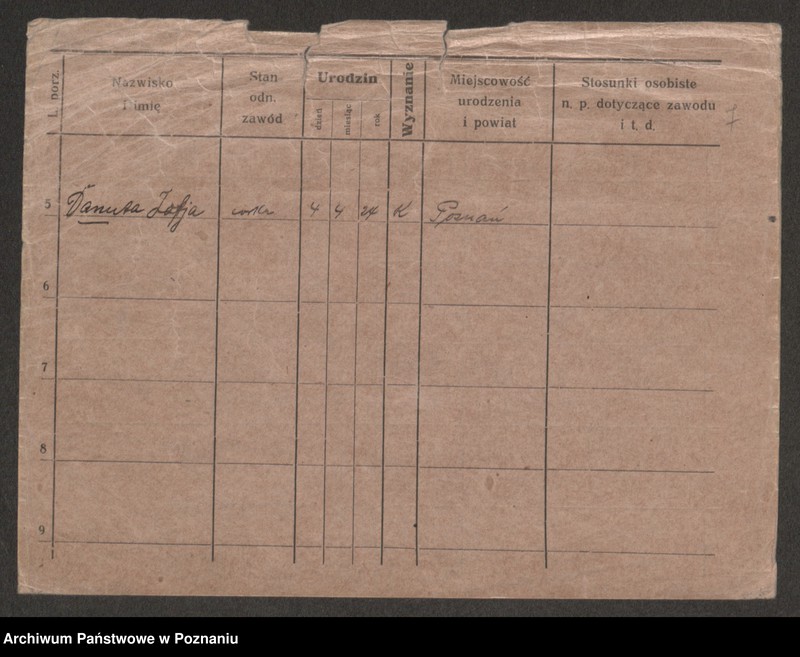 l. porz.
Nazwisko
i imię
Stan
odn.
zawód
Urodzin
dzień
miesiąc
rok
Wyznanie
Miejscowość
urodzenia
i powiat
Stosunki osobiste
n. p. dotyczące zawodu
i t. d.
7
5 Danuta Zofja córka 4 4 24 K Poznań
6
7
8
9
Archiwum Państwowe w Poznaniu